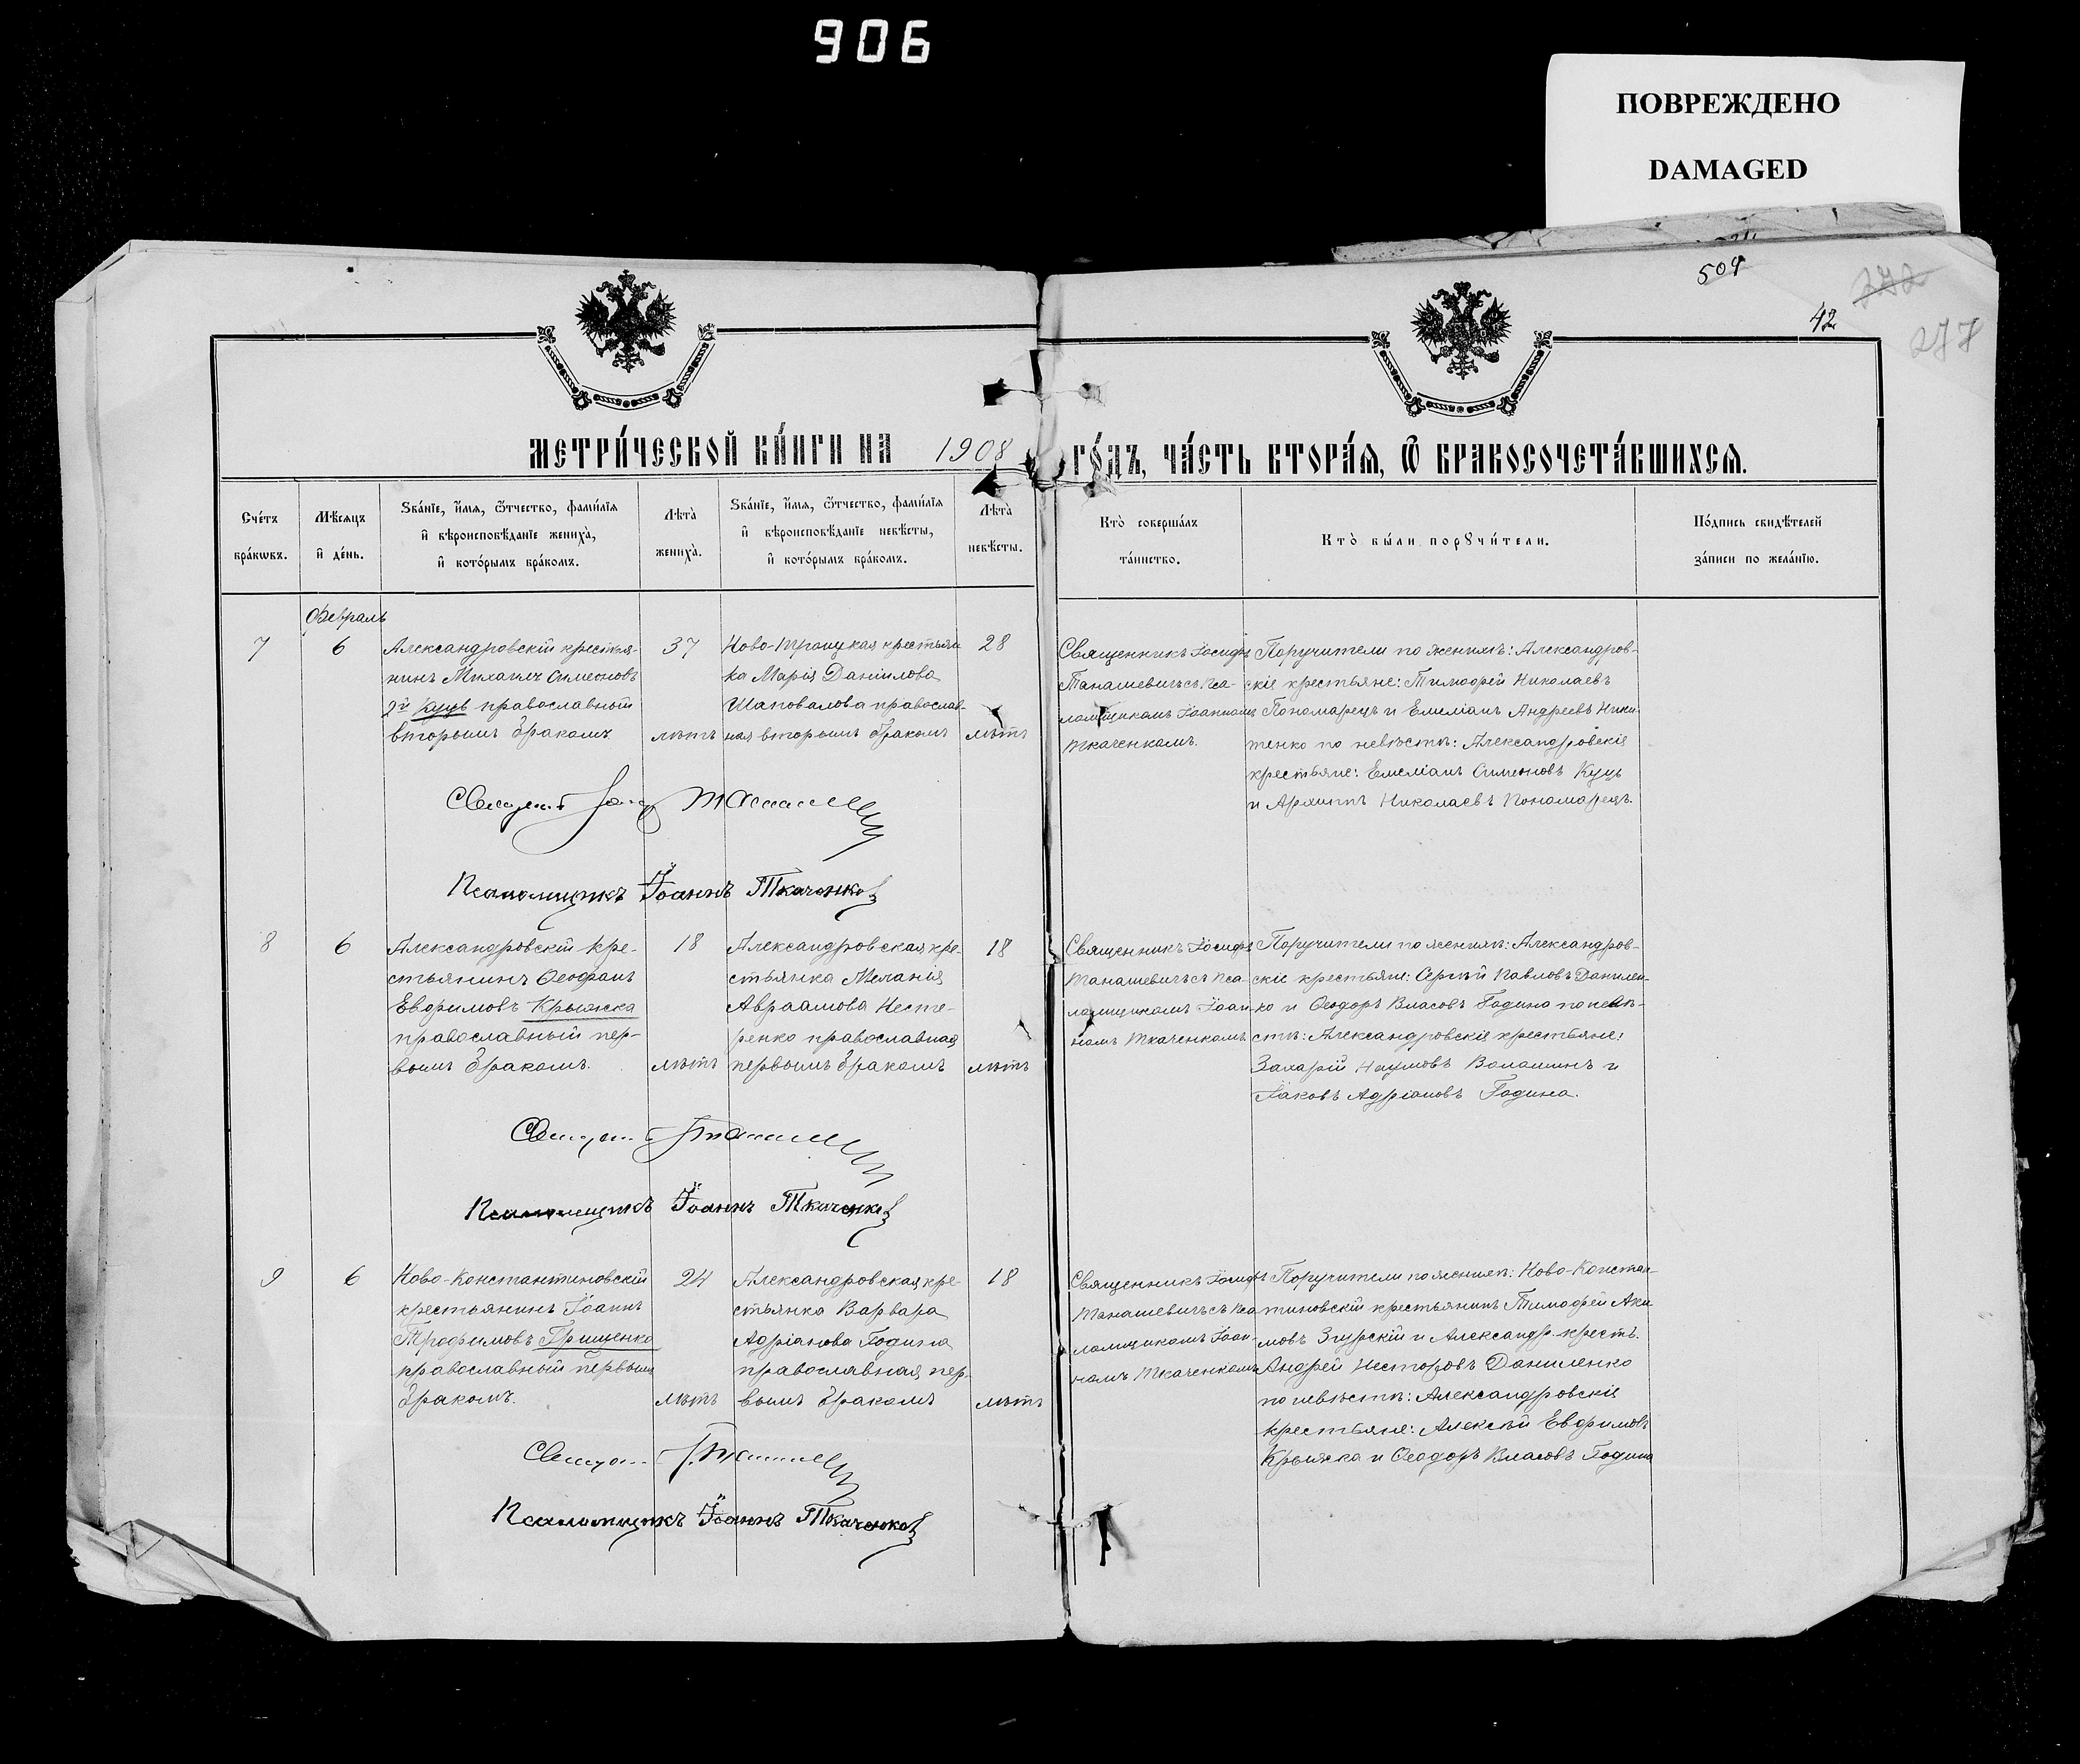 906
ПОВРЕЖДЕНО
DAMAGED
504
42
277
МЕТРИ́ЧЕСКОЙ КНИ́ГИ НА 1908 ГО́ДЪ, ЧА́СТЬ ВТОРА́Я, Ѡ БРАКОСОЧЕТА́ВШИХСЯ.
Сче́тъ
бра́кѡвъ.
Мѣ́сяцъ
и҆ де́нь.
Ѕва́нїе, и҆́мя, ѻ҆́тчество, фами́лїя
и҆ вѣроисповѣ́данїе жениха̀,
и҆ кото́рымъ бра́комъ.
Лѣ́та̀
жениха̀.
Ѕва́нїе, и҆́мя, ѻ҆́тчество, фами́лїя
и҆ вѣроисповѣ́данїе невѣ́сты,
и҆ кото́рымъ бра́комъ.
Лѣ́та̀
невѣ́сты.
Кто̀ соверша́лъ
та́инство.
Кто̀ бы́ли порꙋчи́тели.
По́дпись свидѣ́телей
за́писи по жела́нїю.
Февраль
7
6
Александровскій крестья-
нинъ Михаилъ Симеоновъ
2й Куцъ православный
вторымъ бракомъ
37
лѣтъ
Ново-Троицкая крестьян
ка Марія Даніилова
Шаповалова православ-
ная вторымъ бракомъ
28
лѣтъ
Священникъ Іосифъ
Танашевичъ съ пса-
ломщикомъ Іоанномъ
Ткаченкомъ.
Поручители по женихѣ: Александров-
скіе крестьяне: Тимофей Николаевъ
Пономарецъ и Емиліанъ Андреевъ Ники-
тенко по невѣстѣ: Александровскіе
крестьяне: Емеліанъ Симеоновъ Куцъ
и Архипъ Николаевъ Пономарецъ.
Псаломщикъ Іоаннъ Ткаченко
8
6
Александровскій кре-
стьянинъ Ѳеофанъ
Евфимовъ Крыжка
православный пер-
вымъ бракомъ.
18
лѣтъ
Александровская кре-
стьянка Меланія
Авраамова Несте-
ренко православная
первымъ бракомъ
18
лѣтъ
Священникъ Іосифъ
Танашевичъ съ пса-
ломщикомъ Іоан-
номъ Ткаченкомъ
Поручители по женихѣ: Александров-
скіе крестьяне: Сергѣй Павловъ Данилен-
ко и Ѳеодоръ Власовъ Година по невѣ-
стѣ: Александровскіе крестьяне:
Захарій Наумовъ Волошинъ и
Іаковъ Адріановъ Година.
Псаломщикъ Іоаннъ Ткаченко
9
6
Ново-Константиновскій
крестьянинъ Іоаннъ
Трофимовъ Грищенко
православный первымъ
бракомъ.
24
лѣтъ
Александровская кре-
стьянка Варвара
Адріанова Година
православная пер-
вымъ бракомъ
18
лѣтъ
Священникъ Іосифъ
Танашевичъ съ пса
ломщикомъ Іоан-
номъ Ткаченкомъ
Поручители по женихѣ: Ново-Констан-
тиновскій крестьянинъ Тимофей Аки
мовъ Згурскій и Александр. крест.
Андрей Несторовъ Даниленко
по невѣстѣ: Александровскіе
крестьяне: Алексѣй Евфимовъ
Крыжка и Ѳеодоръ Власовъ Година
Псаломщикъ Іоаннъ Ткаченко